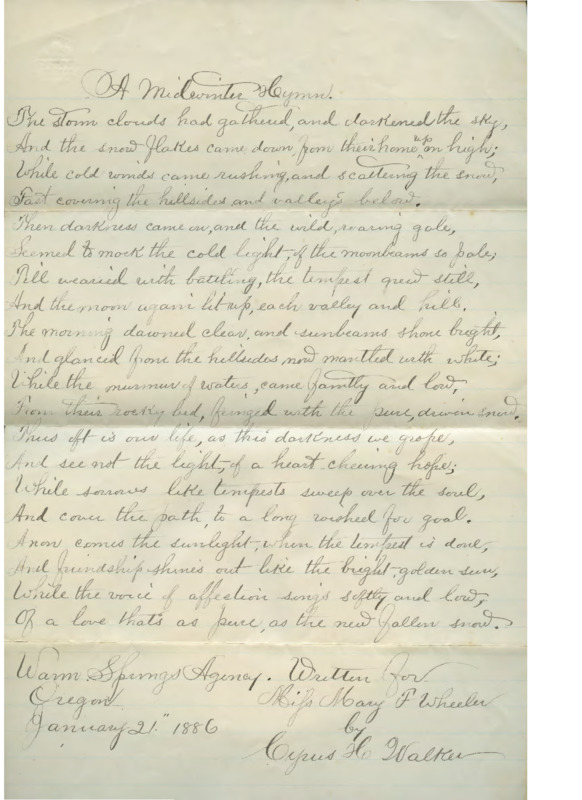 A Midwinter Hymn.
The storm clouds had gathered, and darkened the sky,
And the snow flakes came down, from their home up on high;
While cold winds came rushing, and scattering the snow,
Fast covering the hillsides and valleys below.
Then darkness came on, and the wild, roaring gale,
Seemed to mock the cold light, of the moonbeams so pale;
Till wearied with battling, the tempest grew still,
And the moon again lit up, each valley and hill.
The morning dawned clear, and sunbeams shone bright,
And glanced from the hillsides now mantled with white;
While the murmur of waters, came faintly and low,
From their rocky bed, fringed with the pure, driven snow.
Thus oft is our life, as this darkness we grope,
And see not the light, of a heart cheering hope;
While sorrows like tempests sweep over the soul,
And cover the path, to a long wished for goal.
Anon comes the sunlight, when the tempest is done,
And friendship shines out like the bright golden sun,
While the voice of affection songs softly and low,
Of a love thats as pure, as the new fallen snow.
Warm Springs Agency. Written for
Oregon Miss Mary F Wheeler
January 21." 1886 by
Cyrus H Walker